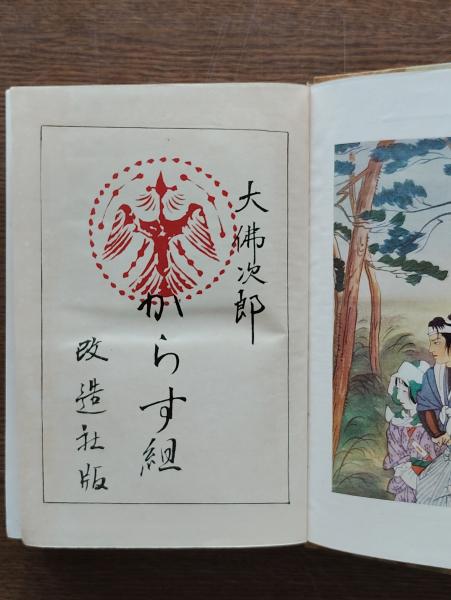 大佛次郎
からす組
改造社版